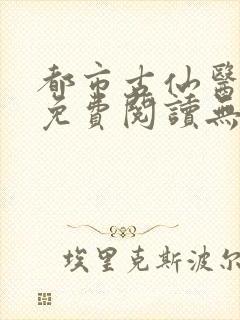 都市古仙醫
免費閱讀無
埃里克斯波尔